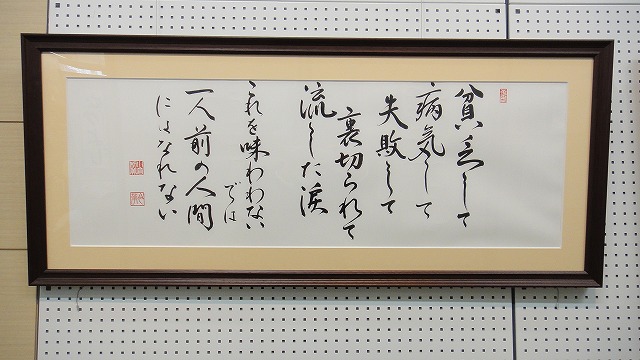 貧乏して
病気して
失敗して
裏切られて
流した涙
これを味わわない
では
一人前の人間
にはなれない